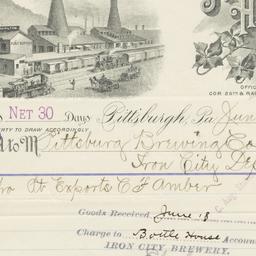 OFFIC
COR. 25TH & RA
NET 30 Days Pittsburgh, Pa June
RTY TO DRAW ACCORDINGLY
to M Pittsburg Brewing Co
Iron City De
Pt Exports C F Amber
Goods Received June 18
Charge to Bottle House Accoun
IRON CITY, BREWERY.